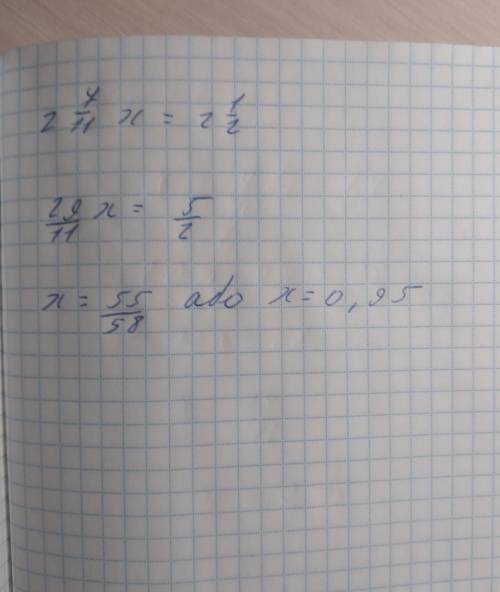 2 7/11 x = 2 1/2
29/11 x = 5/2
x = 55/58 або x = 0,95